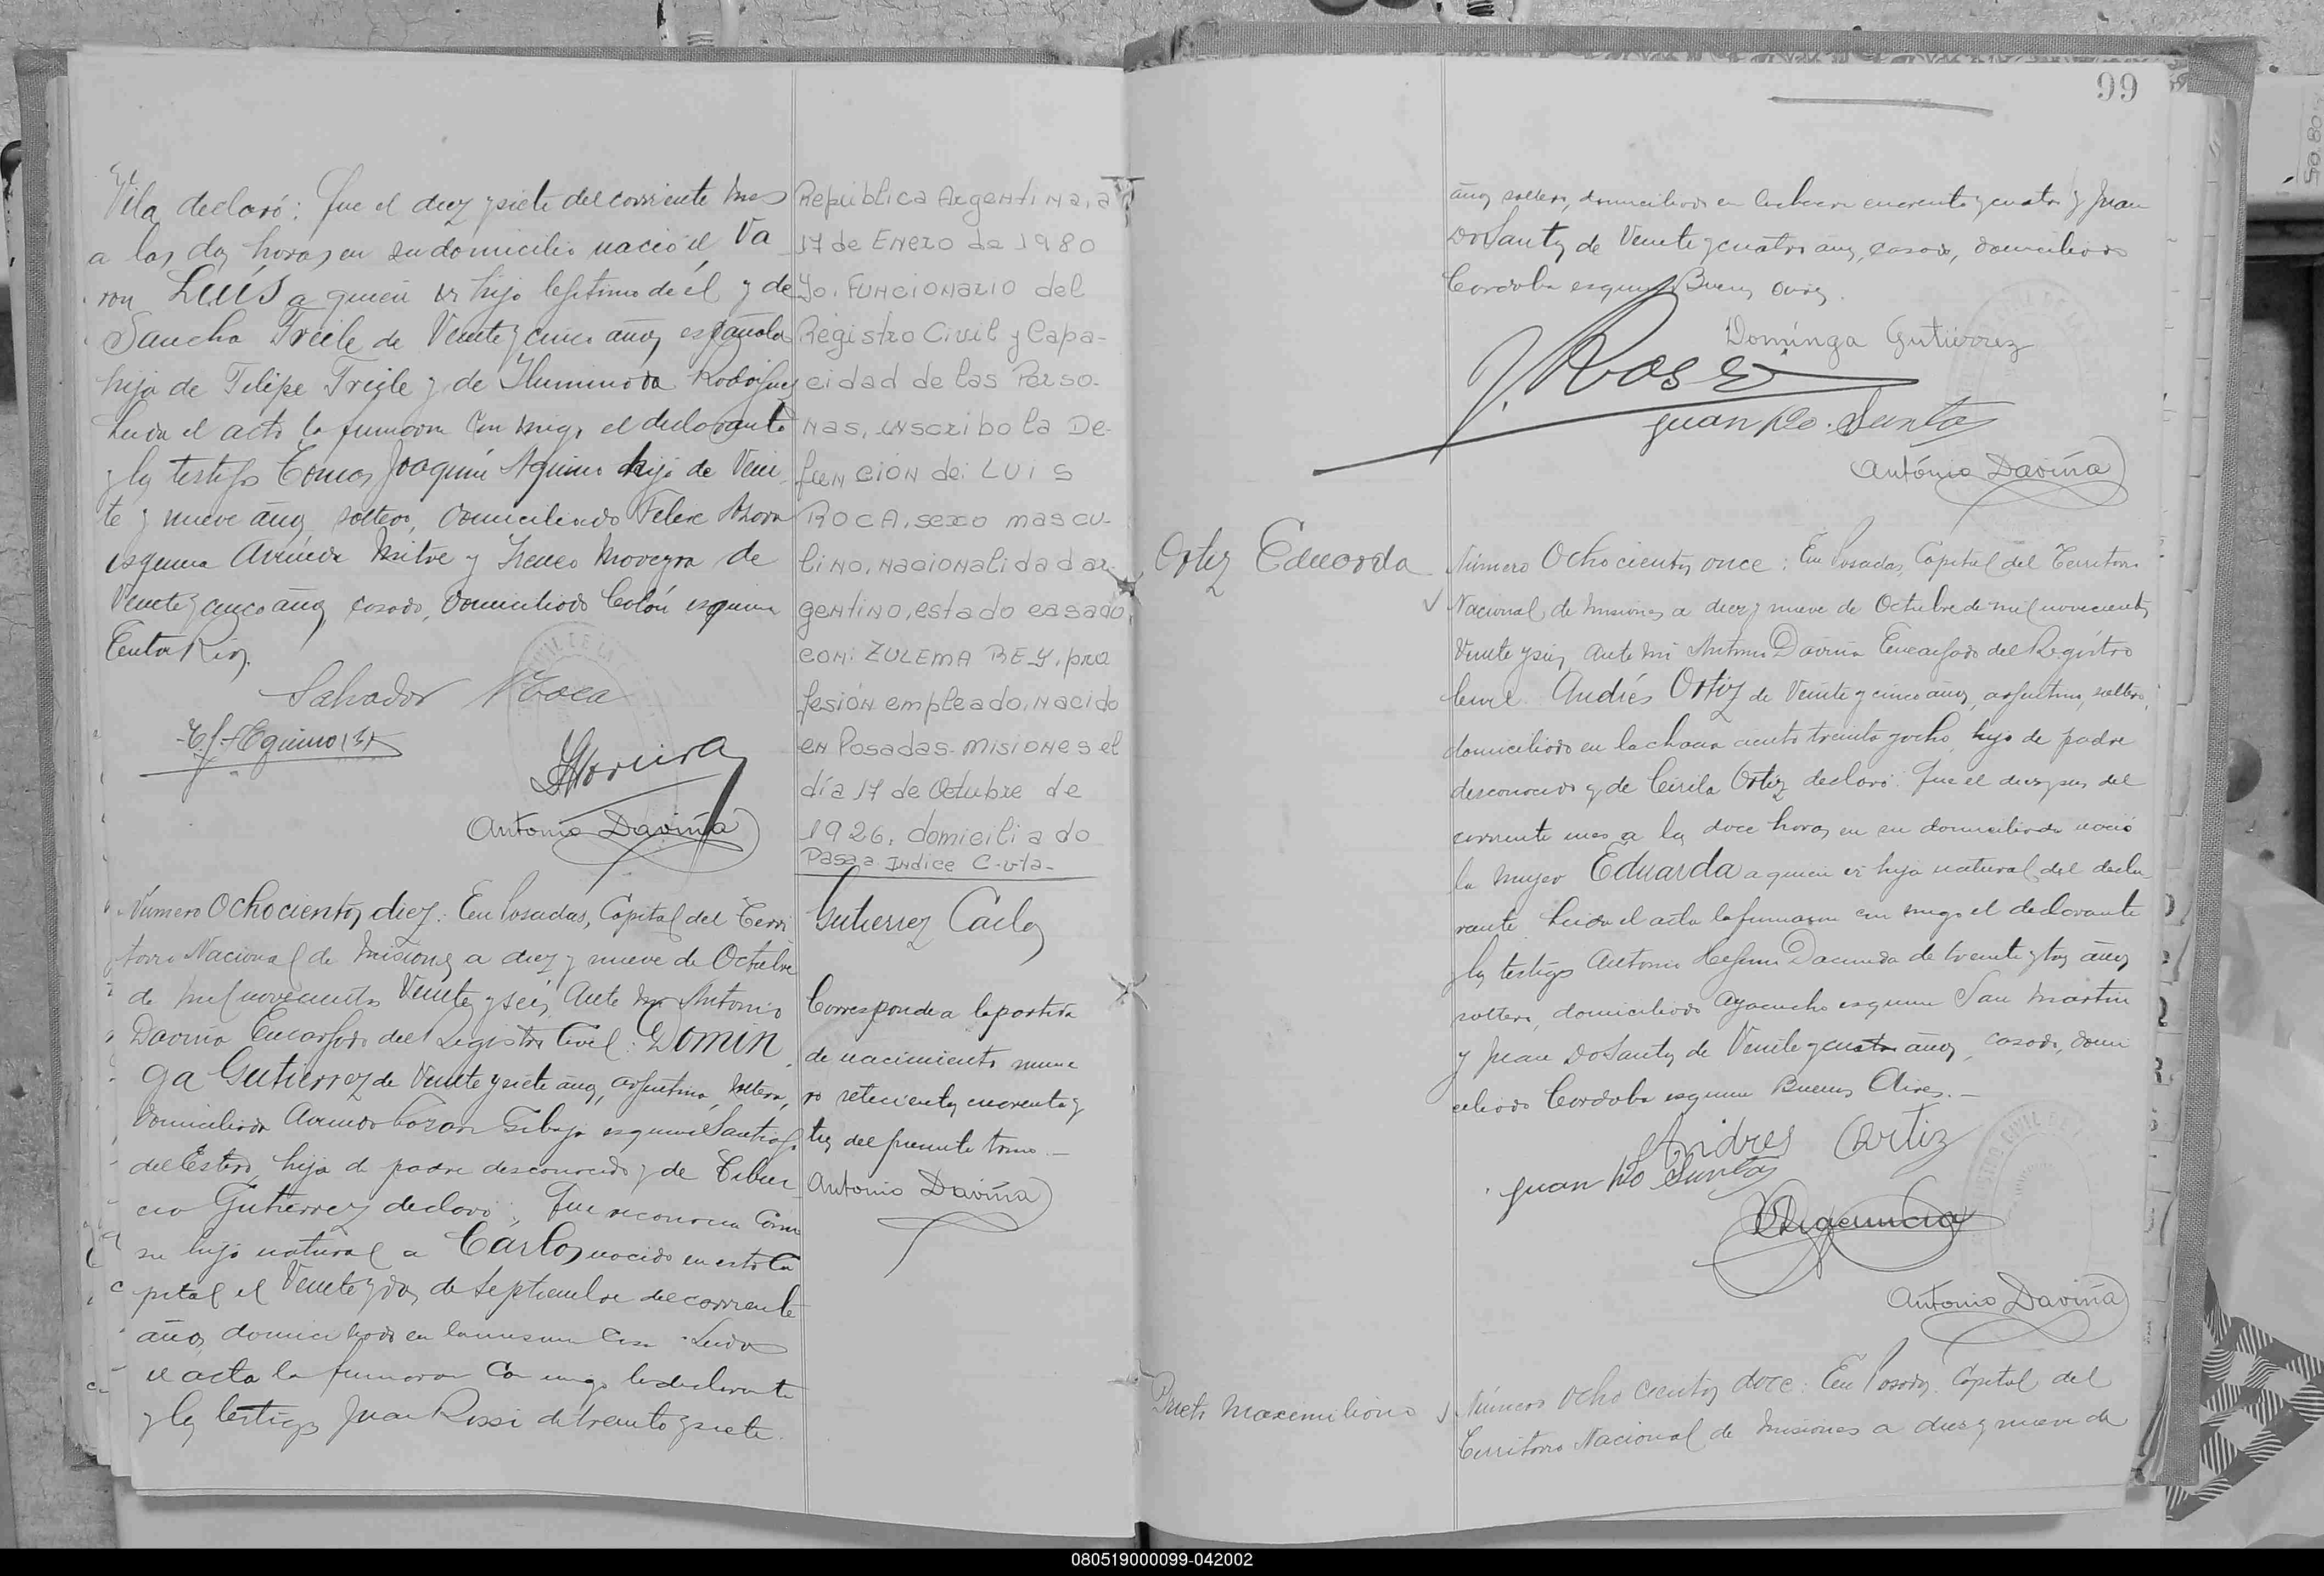 Vila declaró: Que el diez y siete del corriente mes
a las dos horas en su domicilio nació el Va
ron Luis a quien vi hijo lejitimo de él y de
Sancha Treile de Veinte y cinco años española
hija de Felipe Treile y de Iluminada Rodriguez
Leida el acta la firmaron con migo el declarante
y los testigos Tomas Joaquin Aquino hijo de Vein
te y nueve años soltero, domiciliado Felix Azara
esquina Avenida Mitre y Ireneo Moreyra de
Veinte y cinco años casado, domiciliado Colón esquina
Entre Rios.
Salvador Roca
T. J. Aquino (h)
Moreira
Antonio Daviña
República Argentina, a
17 de Enero de 1980
Yo. Funcionario del
Registro Civil y Capa-
cidad de las Perso-
nas, inscribo la De-
función de: LUIS
ROCA, sexo mascu-
lino, nacionalidad ar-
gentino, estado casado
con: ZULEMA REY, pro
fesión empleado, nacido
en Posadas-Misiones el
día 17 de Octubre de
1926. domiciliado
Pasa a Indice C-vta-
Número Ochocientos diez: En Posadas, Capital del Terri
torio Nacional de Misiones a diez y nueve de Octubre
de mil novecientos Veinte y seis, Ante mi Antonio
Daviña Encargado del Registro Civil: Domin
ga Gutierrez de Veinte y siete años, argentina, soltera,
domiciliada Avenida Lazar Gibaja esquina Santiago
del Estero, hija de padre desconocido y de Tibur
cia Gutierrez declaró: Que reconocia como
su hijo natural a Carlos nacido en esta Ca
pital el Veinte y dos de Septiembre del corriente
año, domiciliado en la misma casa. Leida
el acta la firmaron con migo la declarante
y los testigos Juan Rossi de treinta y siete
Gutierrez Carlos
Corresponde a la partida
de nacimiento nume
ro setecientos cuarenta y
tres del presente tomo.—
Antonio Daviña
99
años soltero, domiciliado en la chacra cuarenta y cuatro y Juan
DoSantos de Veinte y cuatro años, casado, domiciliado
Cordoba esquina Buenos Aires.
Dominga Gutiérrez
J. Rossi
Juan Do. Santos
Antonio Daviña
Ortiz Eduarda
Número Ochocientos once: En Posadas, Capital del Territorio
Nacional de Misiones a diez y nueve de Octubre de mil novecientos
Veinte y seis, Ante mi Antonio Daviña Encargado del Registro
Civil: Andrés Ortiz de Veinte y cinco años, argentino, soltero,
domiciliado en la chacra ciento treinta y ocho, hijo de padre
desconocido y de Cirila Ortiz declaró: Que el diez y seis del
corriente mes a las doce horas en su domiciliado nació
la mujer Eduarda a quien vi hija natural del decla
rante. Leida el acta la firmaron con migo el declarante
y los testigos Antonio Dacunda de treinta y tres años
soltero, domiciliado Ayacucho esquina San Martin
y Juan DoSantos de Veinte y cuatro años, casado, domi
ciliado Cordoba esquina Buenos Aires.—
Andres Ortiz
Juan Do Santos
Antonio Daviña
Prieto Maximiliano
Número Ocho cientos doce: En Posadas, Capital del
Territorio Nacional de Misiones a diez y nueve de
080519000099-042002